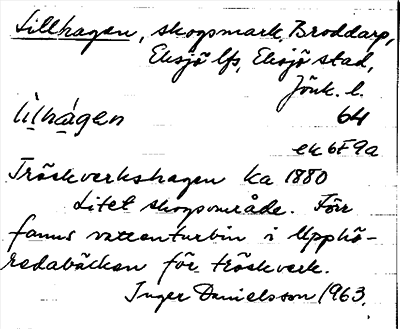 Lillhagen, skogsmark, Broddarp,
Eksjö lfs, Eksjö stad,
Jönk. l.
lìlhágen 64
ek 6F9a
Tröskverkshagen ka 1880
Litet skogsområde. Förr
fanns vattenturbin i Upphö-
redabäcken för tröskverk.
Inger Danielsson 1963.